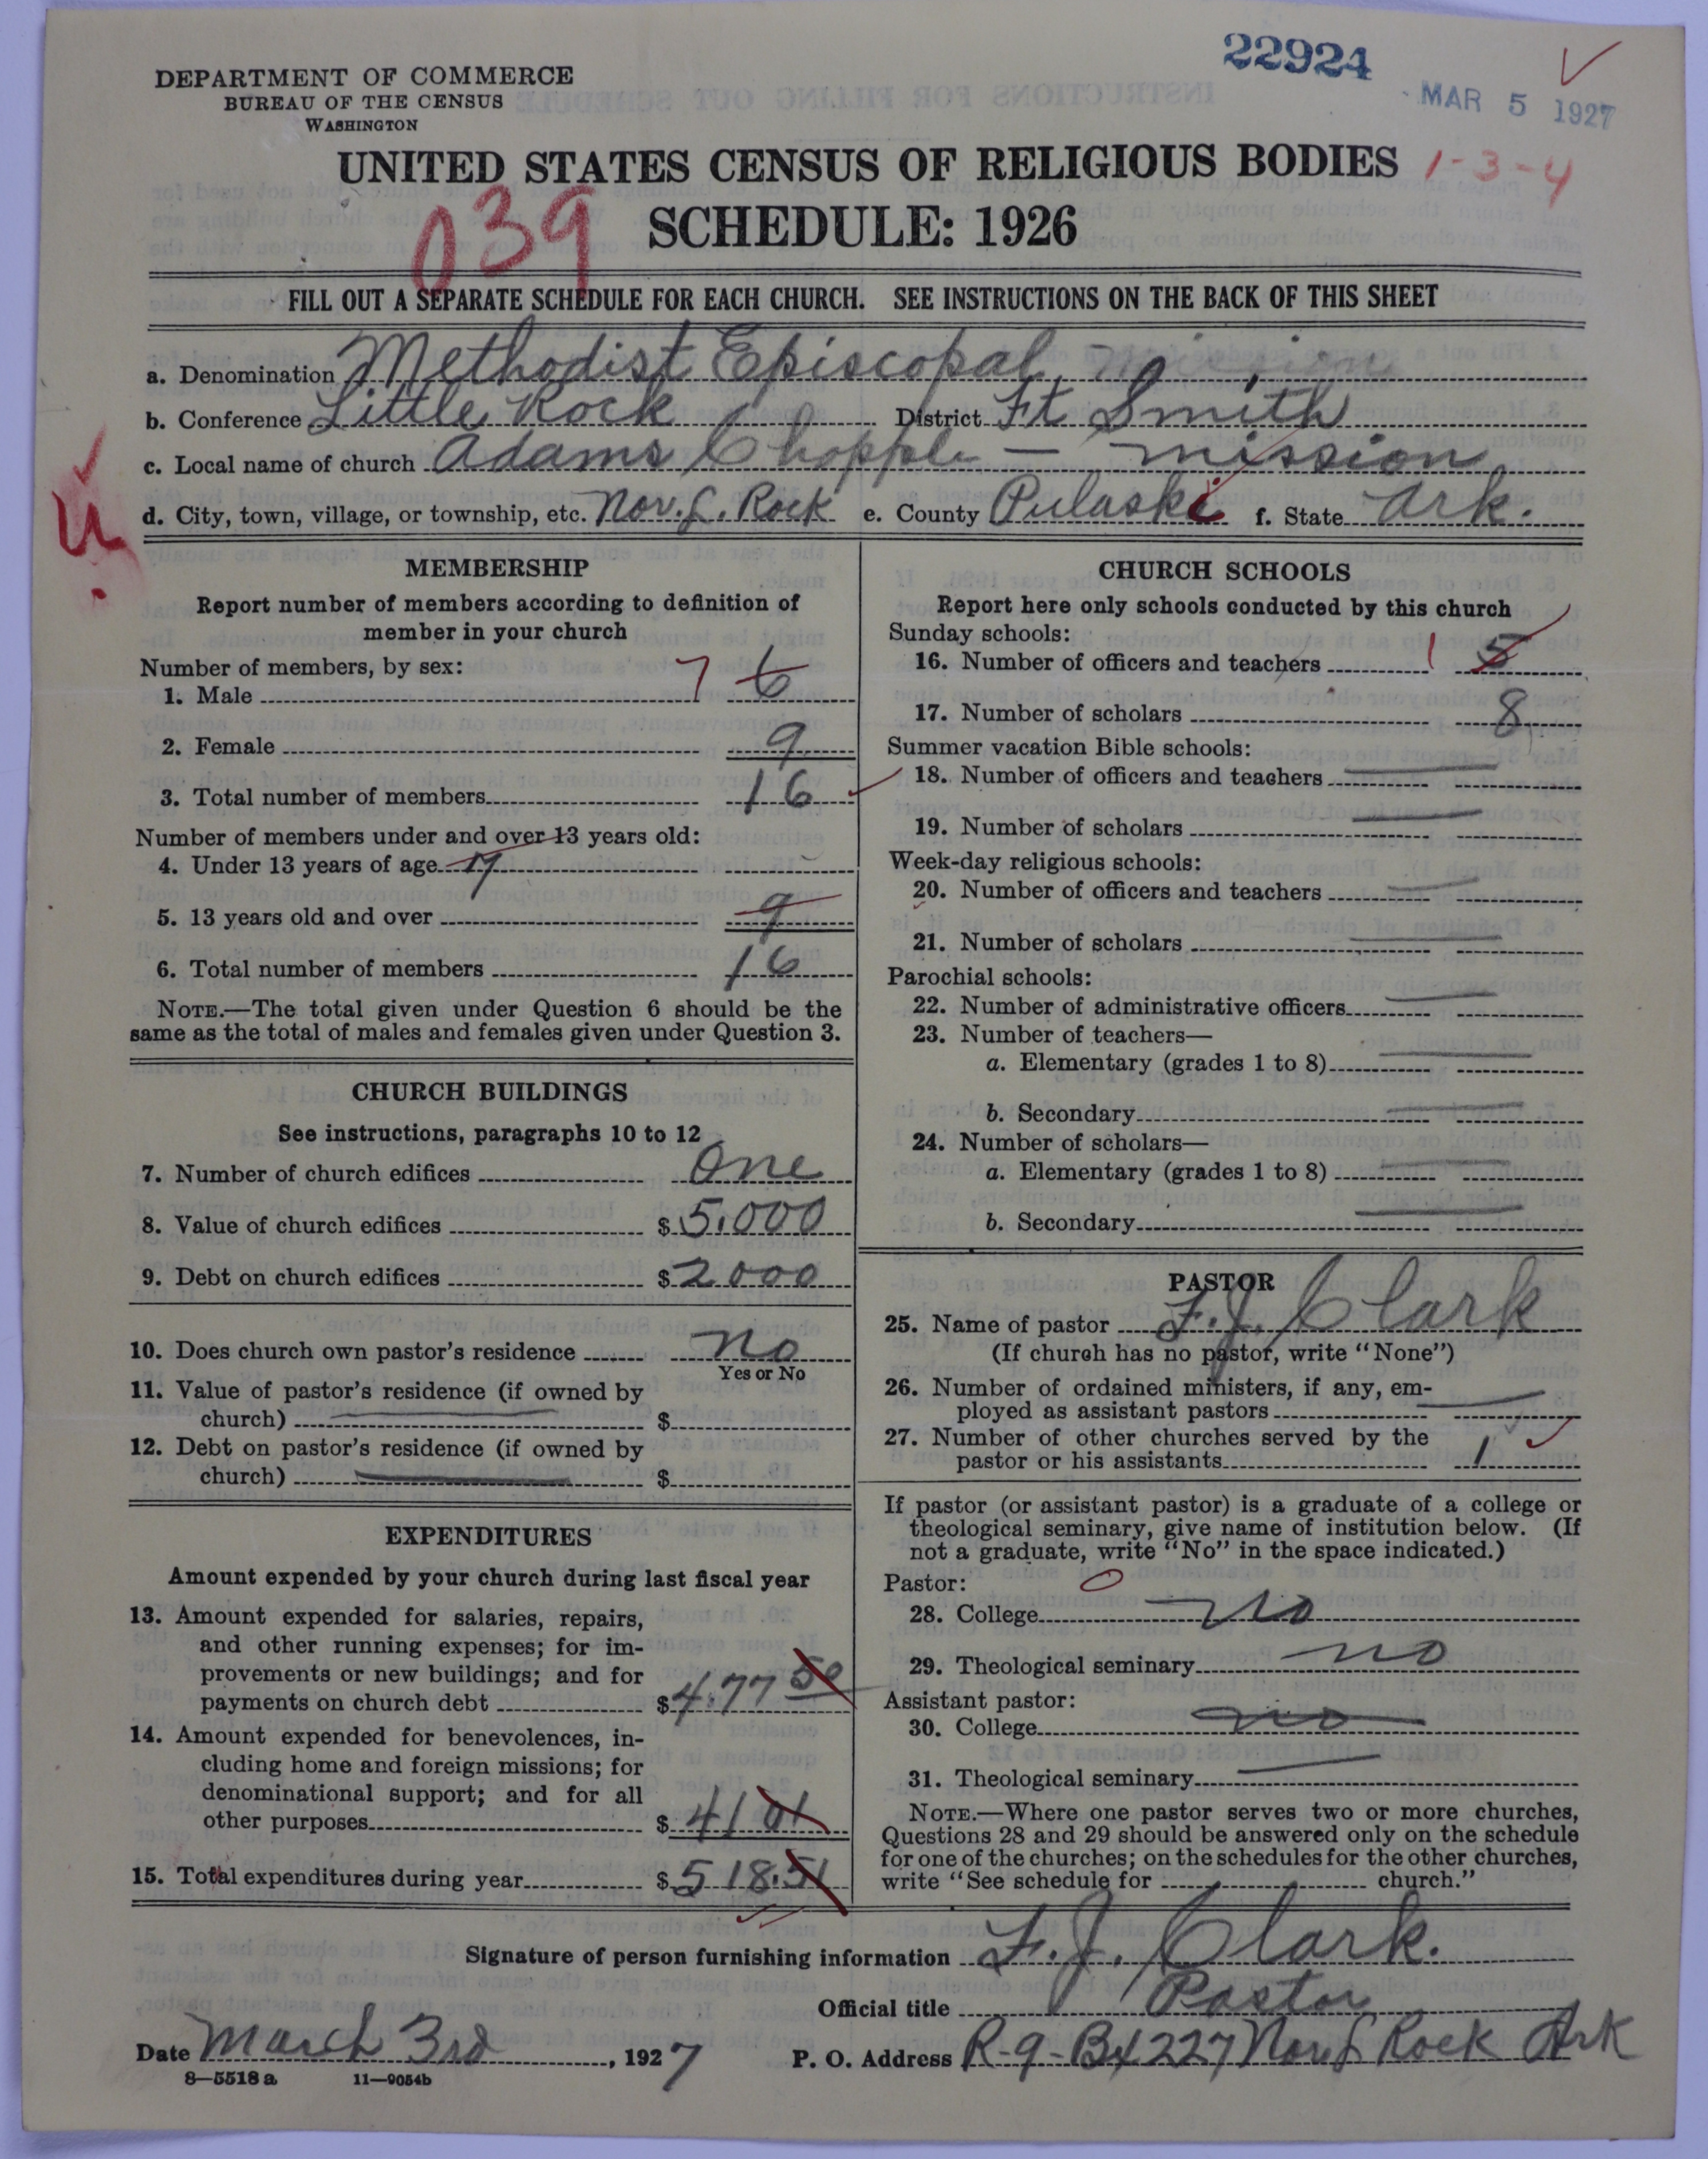 22924
MAR 5 1927
DEPARTMENT OF COMMERCE
BUREAU OF THE CENSUS
WASHINGTON
UNITED STATES CENSUS OF RELIGIOUS BODIES 1-3-4
SCHEDULE: 1926
039
FILL OUT A SEPARATE SCHEDULE FOR EACH CHURCH. SEE INSTRUCTIONS ON THE BACK OF THIS SHEET
a. Denomination Methodist Episcopal mission
b. Conference Little Rock District Ft Smith
c. Local name of church Adams Chopple - mission
d. City, town, village, or township, etc. Nor. L. Rock e. County Pulaski f. State Ark.
MEMBERSHIP
Report number of members according to definition of
member in your church
Number of members, by sex:
1. Male 7 6
2. Female 9
3. Total number of members 16
Number of members under and over 13 years old:
4. Under 13 years of age 7
5. 13 years old and over 9
6. Total number of members 16
NOTE.—The total given under Question 6 should be the
same as the total of males and females given under Question 3.
CHURCH BUILDINGS
See instructions, paragraphs 10 to 12
7. Number of church edifices One
8. Value of church edifices $ 5.000
9. Debt on church edifices $ 2000
10. Does church own pastor's residence no
Yes or No
11. Value of pastor's residence (if owned by
church) $
12. Debt on pastor's residence (if owned by
church) $
EXPENDITURES
Amount expended by your church during last fiscal year
13. Amount expended for salaries, repairs,
and other running expenses; for im-
provements or new buildings; and for
payments on church debt $ 4.77 50
14. Amount expended for benevolences, in-
cluding home and foreign missions; for
denominational support; and for all
other purposes $ 41 01
15. Total expenditures during year $ 518.51
CHURCH SCHOOLS
Report here only schools conducted by this church
Sunday schools:
16. Number of officers and teachers 1 5
17. Number of scholars 8
Summer vacation Bible schools:
18. Number of officers and teachers
19. Number of scholars
Week-day religious schools:
20. Number of officers and teachers
21. Number of scholars
Parochial schools:
22. Number of administrative officers
23. Number of teachers—
a. Elementary (grades 1 to 8)
b. Secondary
24. Number of scholars—
a. Elementary (grades 1 to 8)
b. Secondary
PASTOR
25. Name of pastor F. J. Clark
(If church has no pastor, write "None")
26. Number of ordained ministers, if any, em-
ployed as assistant pastors
27. Number of other churches served by the
pastor or his assistants 1
If pastor (or assistant pastor) is a graduate of a college or
theological seminary, give name of institution below. (If
not a graduate, write "No" in the space indicated.)
Pastor: 0
28. College No
29. Theological seminary no
Assistant pastor:
30. College no
31. Theological seminary
NOTE.—Where one pastor serves two or more churches,
Questions 28 and 29 should be answered only on the schedule
for one of the churches; on the schedules for the other churches,
write "See schedule for church."
Signature of person furnishing information F. J. Clark.
Official title Pastor
Date March 3rd, 1927 P. O. Address R-9-Bx 227 Nor L Rock Ark
8—5518a 11—9054b